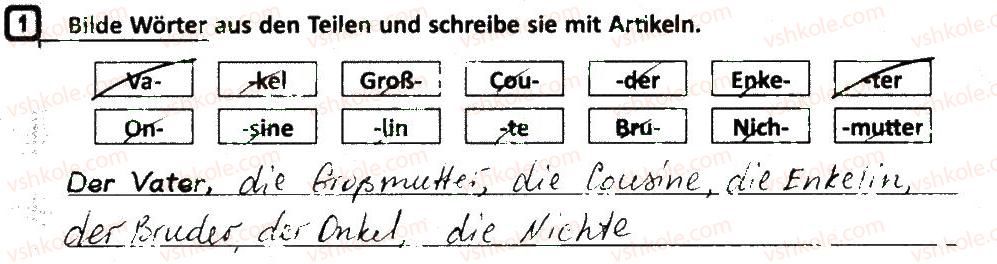 1 Bilde Wörter aus den Teilen und schreibe sie mit Artikeln.
Va- -kel Groß- Cou- -der Enke- -ter
On- -sine -lin -te Bru- Nich- -mutter
Der Vater, die Großmutter, die Cousine, die Enkelin,
der Bruder, der Onkel, die Nichte
vshkole.com